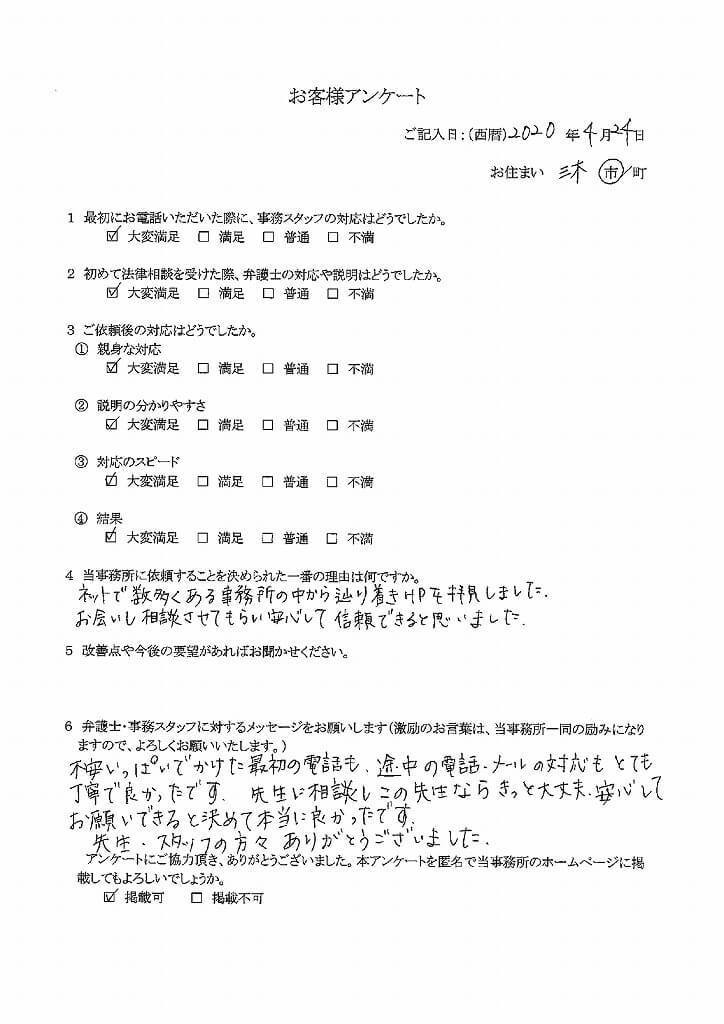 お客様アンケート
ご記入日:(西暦)2020 年4月24日
お住まい 三木 市/町
1 最初にお電話いただいた際に、事務スタッフの対応はどうでしたか。
☑ 大変満足 □ 満足 □ 普通 □ 不満
2 初めて法律相談を受けた際、弁護士の対応や説明はどうでしたか。
☑ 大変満足 □ 満足 □ 普通 □ 不満
3 ご依頼後の対応はどうでしたか。
① 親身な対応
☑ 大変満足 □ 満足 □ 普通 □ 不満
② 説明の分かりやすさ
☑ 大変満足 □ 満足 □ 普通 □ 不満
③ 対応のスピード
☑ 大変満足 □ 満足 □ 普通 □ 不満
④ 結果
☑ 大変満足 □ 満足 □ 普通 □ 不満
4 当事務所に依頼することを決められた一番の理由は何ですか。
ネットで数多くある事務所の中から辿り着きHPを拝見しました.
お会いし相談させてもらい安心して信頼できると思いました.
5 改善点や今後の要望があればお聞かせください。
6 弁護士・事務スタッフに対するメッセージをお願いします(激励のお言葉は、当事務所一同の励みになり
ますので、よろしくお願いいたします。)
不安いっぱいでかけた最初の電話も、途中の電話・メールの対応もとても
丁寧で良かったです. 先生に相談しこの先生ならきっと大丈夫.安心して
お願いできると決めて本当に良かったです.
先生・スタッフの方々 ありがとうございました.
アンケートにご協力頂き、ありがとうございました。本アンケートを匿名で当事務所のホームページに掲
載してもよろしいでしょうか。
☑ 掲載可 □ 掲載不可